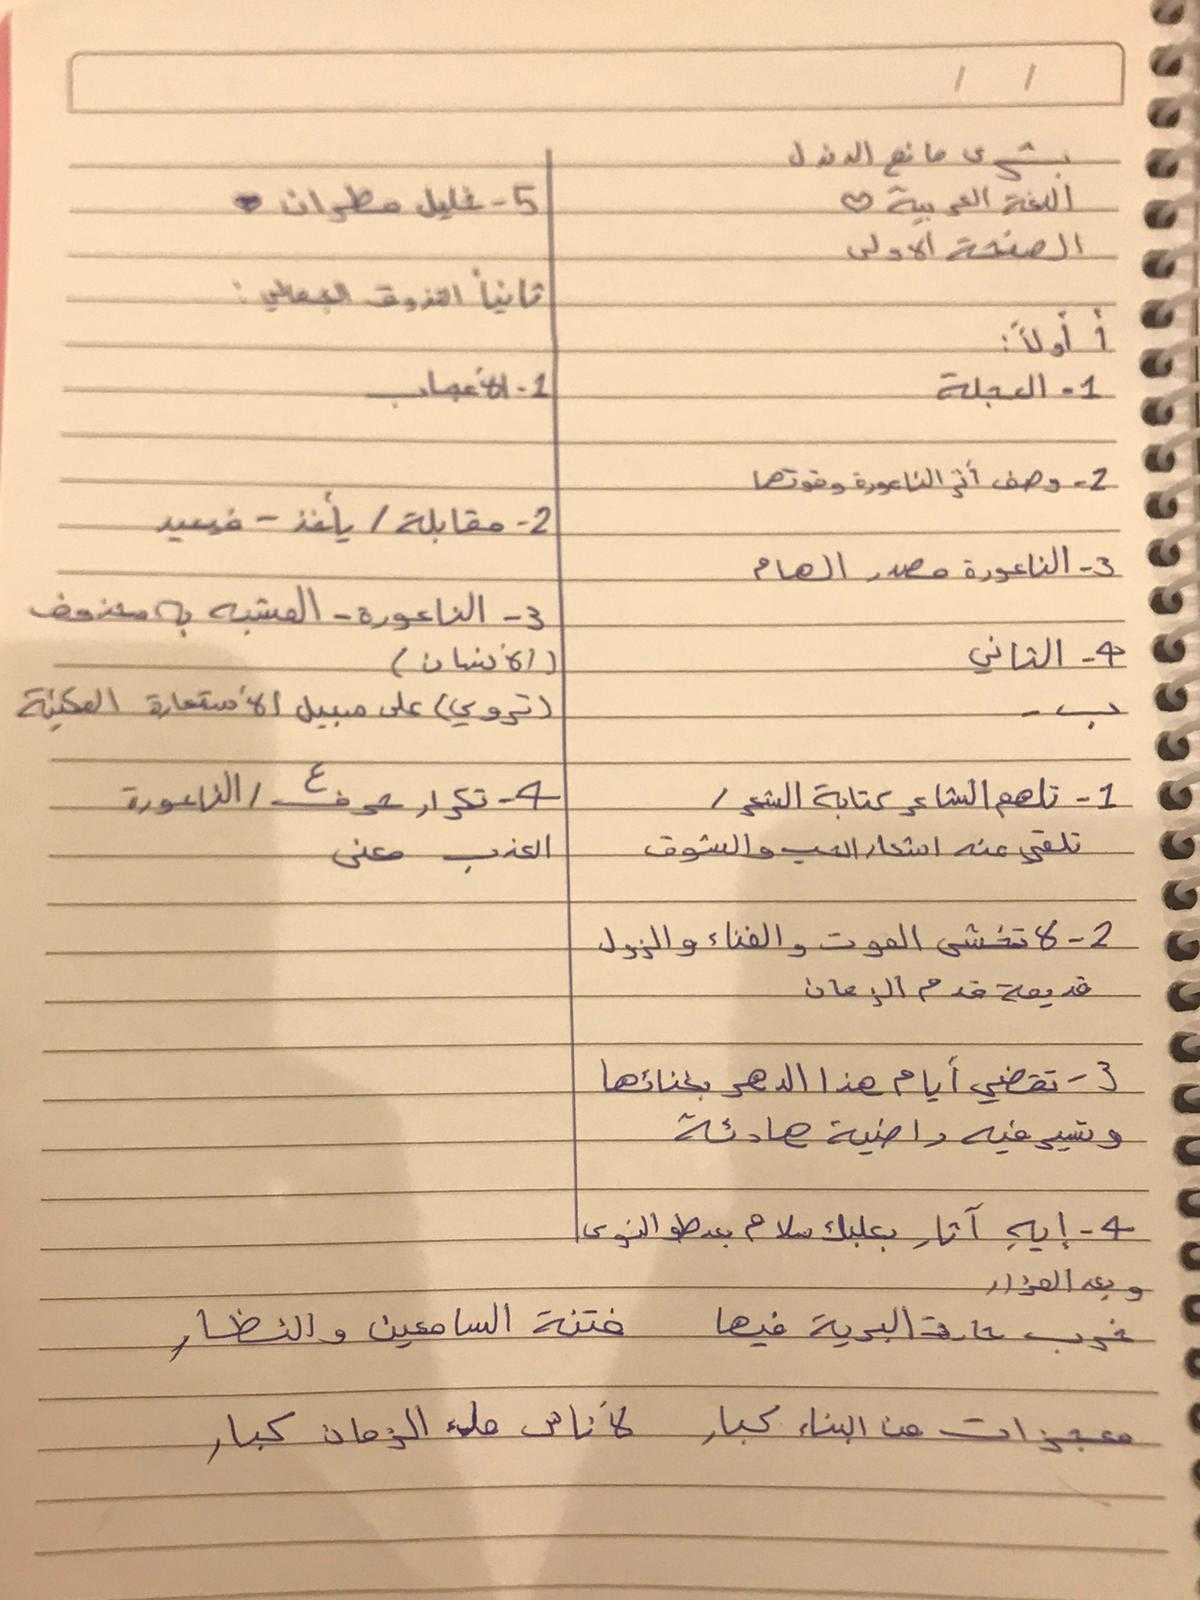 بشرى مانع الدندل
اللغة العربية ♡
الصفحة الاولى
أ أولاً:
1- العجلة
2- وصف أثر الناعورة وقوتها
3- الناعورة مصدر الهام
4- الثاني
ب -
1- تلهم الشاعر كتابة الشعر /
تلقي عنه اشعار الحب والشوق
2- لا تخشى الموت والفناء والزول
قديمة قدم الزمان
3- تقضي أيام هذا الدهر بغنائها
وتسير فيه راضية هادئة
4- إيهِ آثار بعلبك سلام بعد طو النوى
وبعد المزار
خرب حارة البرية فيها فتنة السامعين والنظار
معجزات من البناء كبار لأناس ملء الزمان كبار
5- خليل مطران
ثانياً التذوق الجمالي:
1- الأعجاب
2- مقابلة / يأخذ - فيعيد
3- الناعورة - المشبه به محذوف
(الأنسان)
(تروي) على سبيل الأستعارة المكنية
4- تكرار حرف ع / الناعورة
العذب معنى